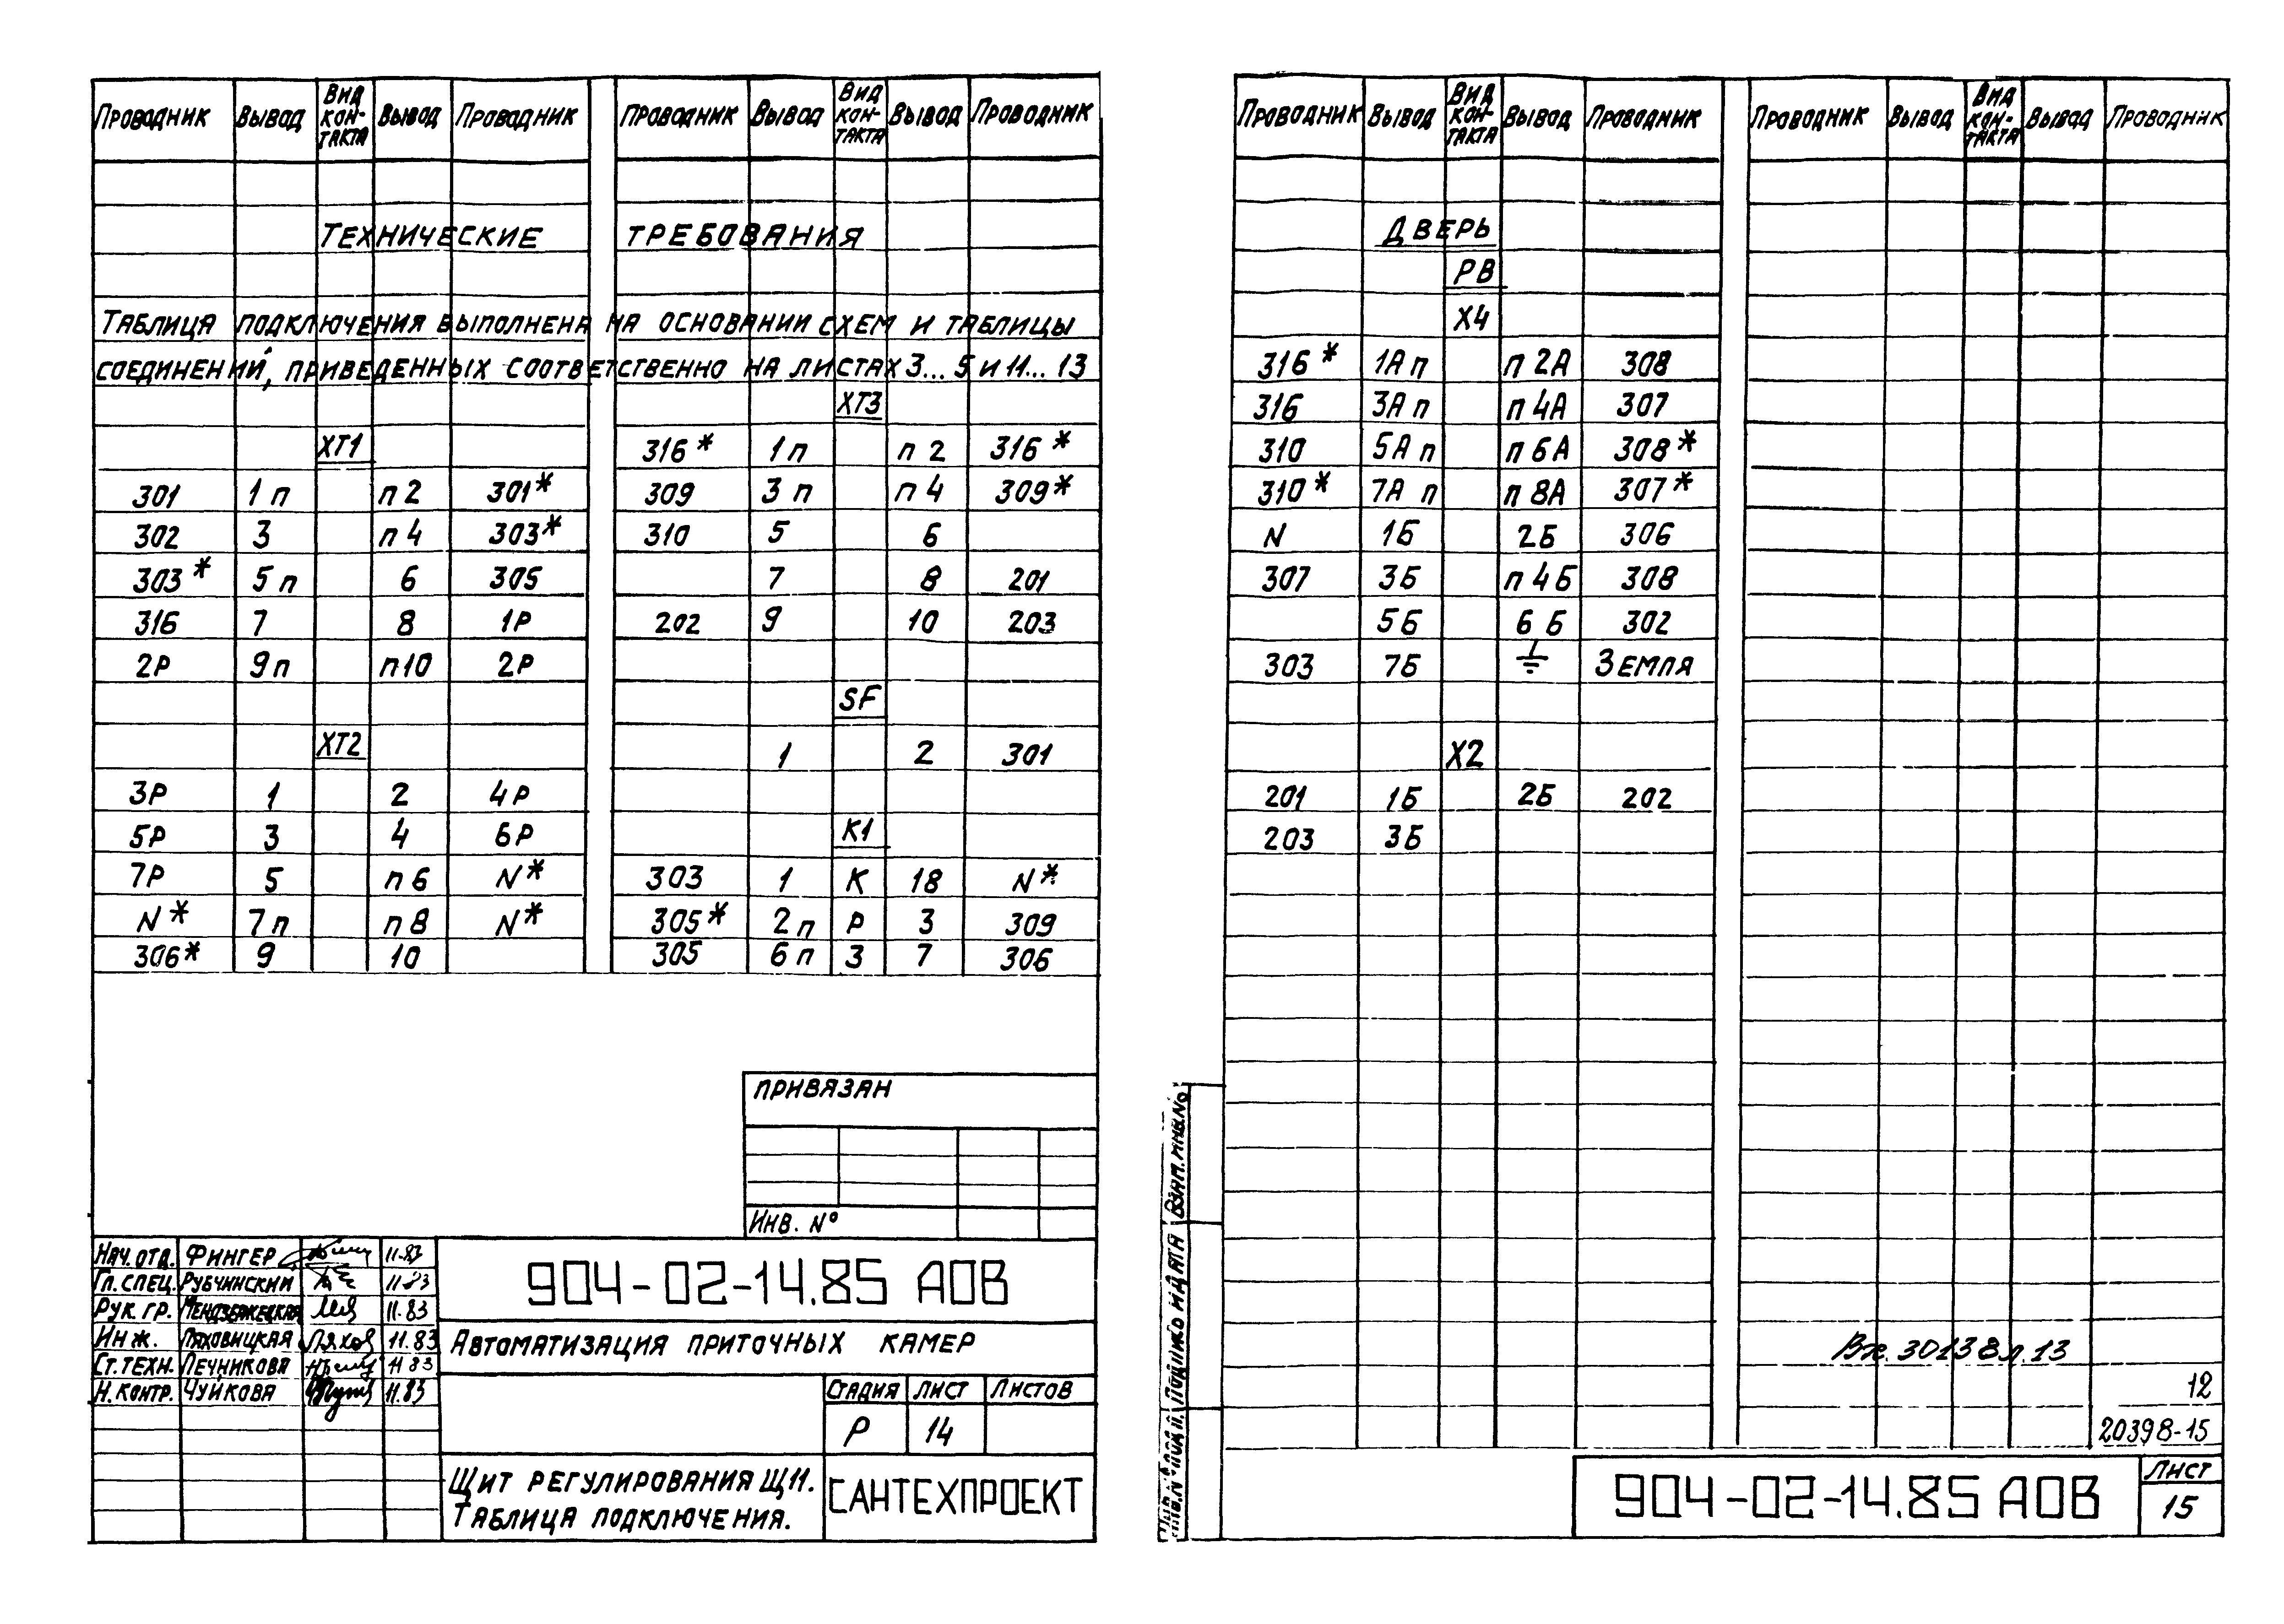 Проводник Вывод Вид кон-такта Вывод Проводник Проводник Вывод Вид кон-такта Вывод Проводник
Технические требования
Таблица подключения выполнена на основании схем и таблицы
соединений, приведенных соответственно на листах 3...5 и 11...13
ХТ3
ХТ1 316* 1п п2 316*
301 1п п2 301* 309 3п п4 309*
302 3 п4 303* 310 5 6
303* 5п 6 305 7 8 201
316 7 8 1Р 202 9 10 203
2Р 9п п10 2Р
SF
ХТ2 1 2 301
3Р 1 2 4Р
5Р 3 4 6Р К1
7Р 5 п6 N* 303 1 К 18 N*
N* 7п п8 N* 305* 2п Р 3 309
306* 9 10 305 6п З 7 306
Привязан
Инв. №
Нач. отд. Фингер 11.83
Гл. спец. Рубчинский 11.83
Рук. гр. 11.83
Инж. Ляховицкая 11.83
Ст. техн. Печникова 11.83
Н. контр. Чуйкова 11.83
904-02-14.85 АОВ
Автоматизация приточных камер
Стадия Лист Листов
Р 14
Щит регулирования Щ11.
Таблица подключения.
САНТЕХПРОЕКТ
Проводник Вывод Вид кон-такта Вывод Проводник Проводник Вывод Вид кон-такта Вывод Проводник
Дверь
РВ
Х4
316* 1Ап п2А 308
316 3Ап п4А 307
310 5Ап п6А 308*
310* 7Ап п8А 307*
N 1Б 2Б 306
307 3Б п4Б 308
5Б 6Б 302
303 7Б ⏚ Земля
Х2
201 1Б 2Б 202
203 3Б
Взам. инв. №
Подп. и дата
Инв. № подл.
30138 л. 13
12
20398-15
904-02-14.85 АОВ
Лист
15